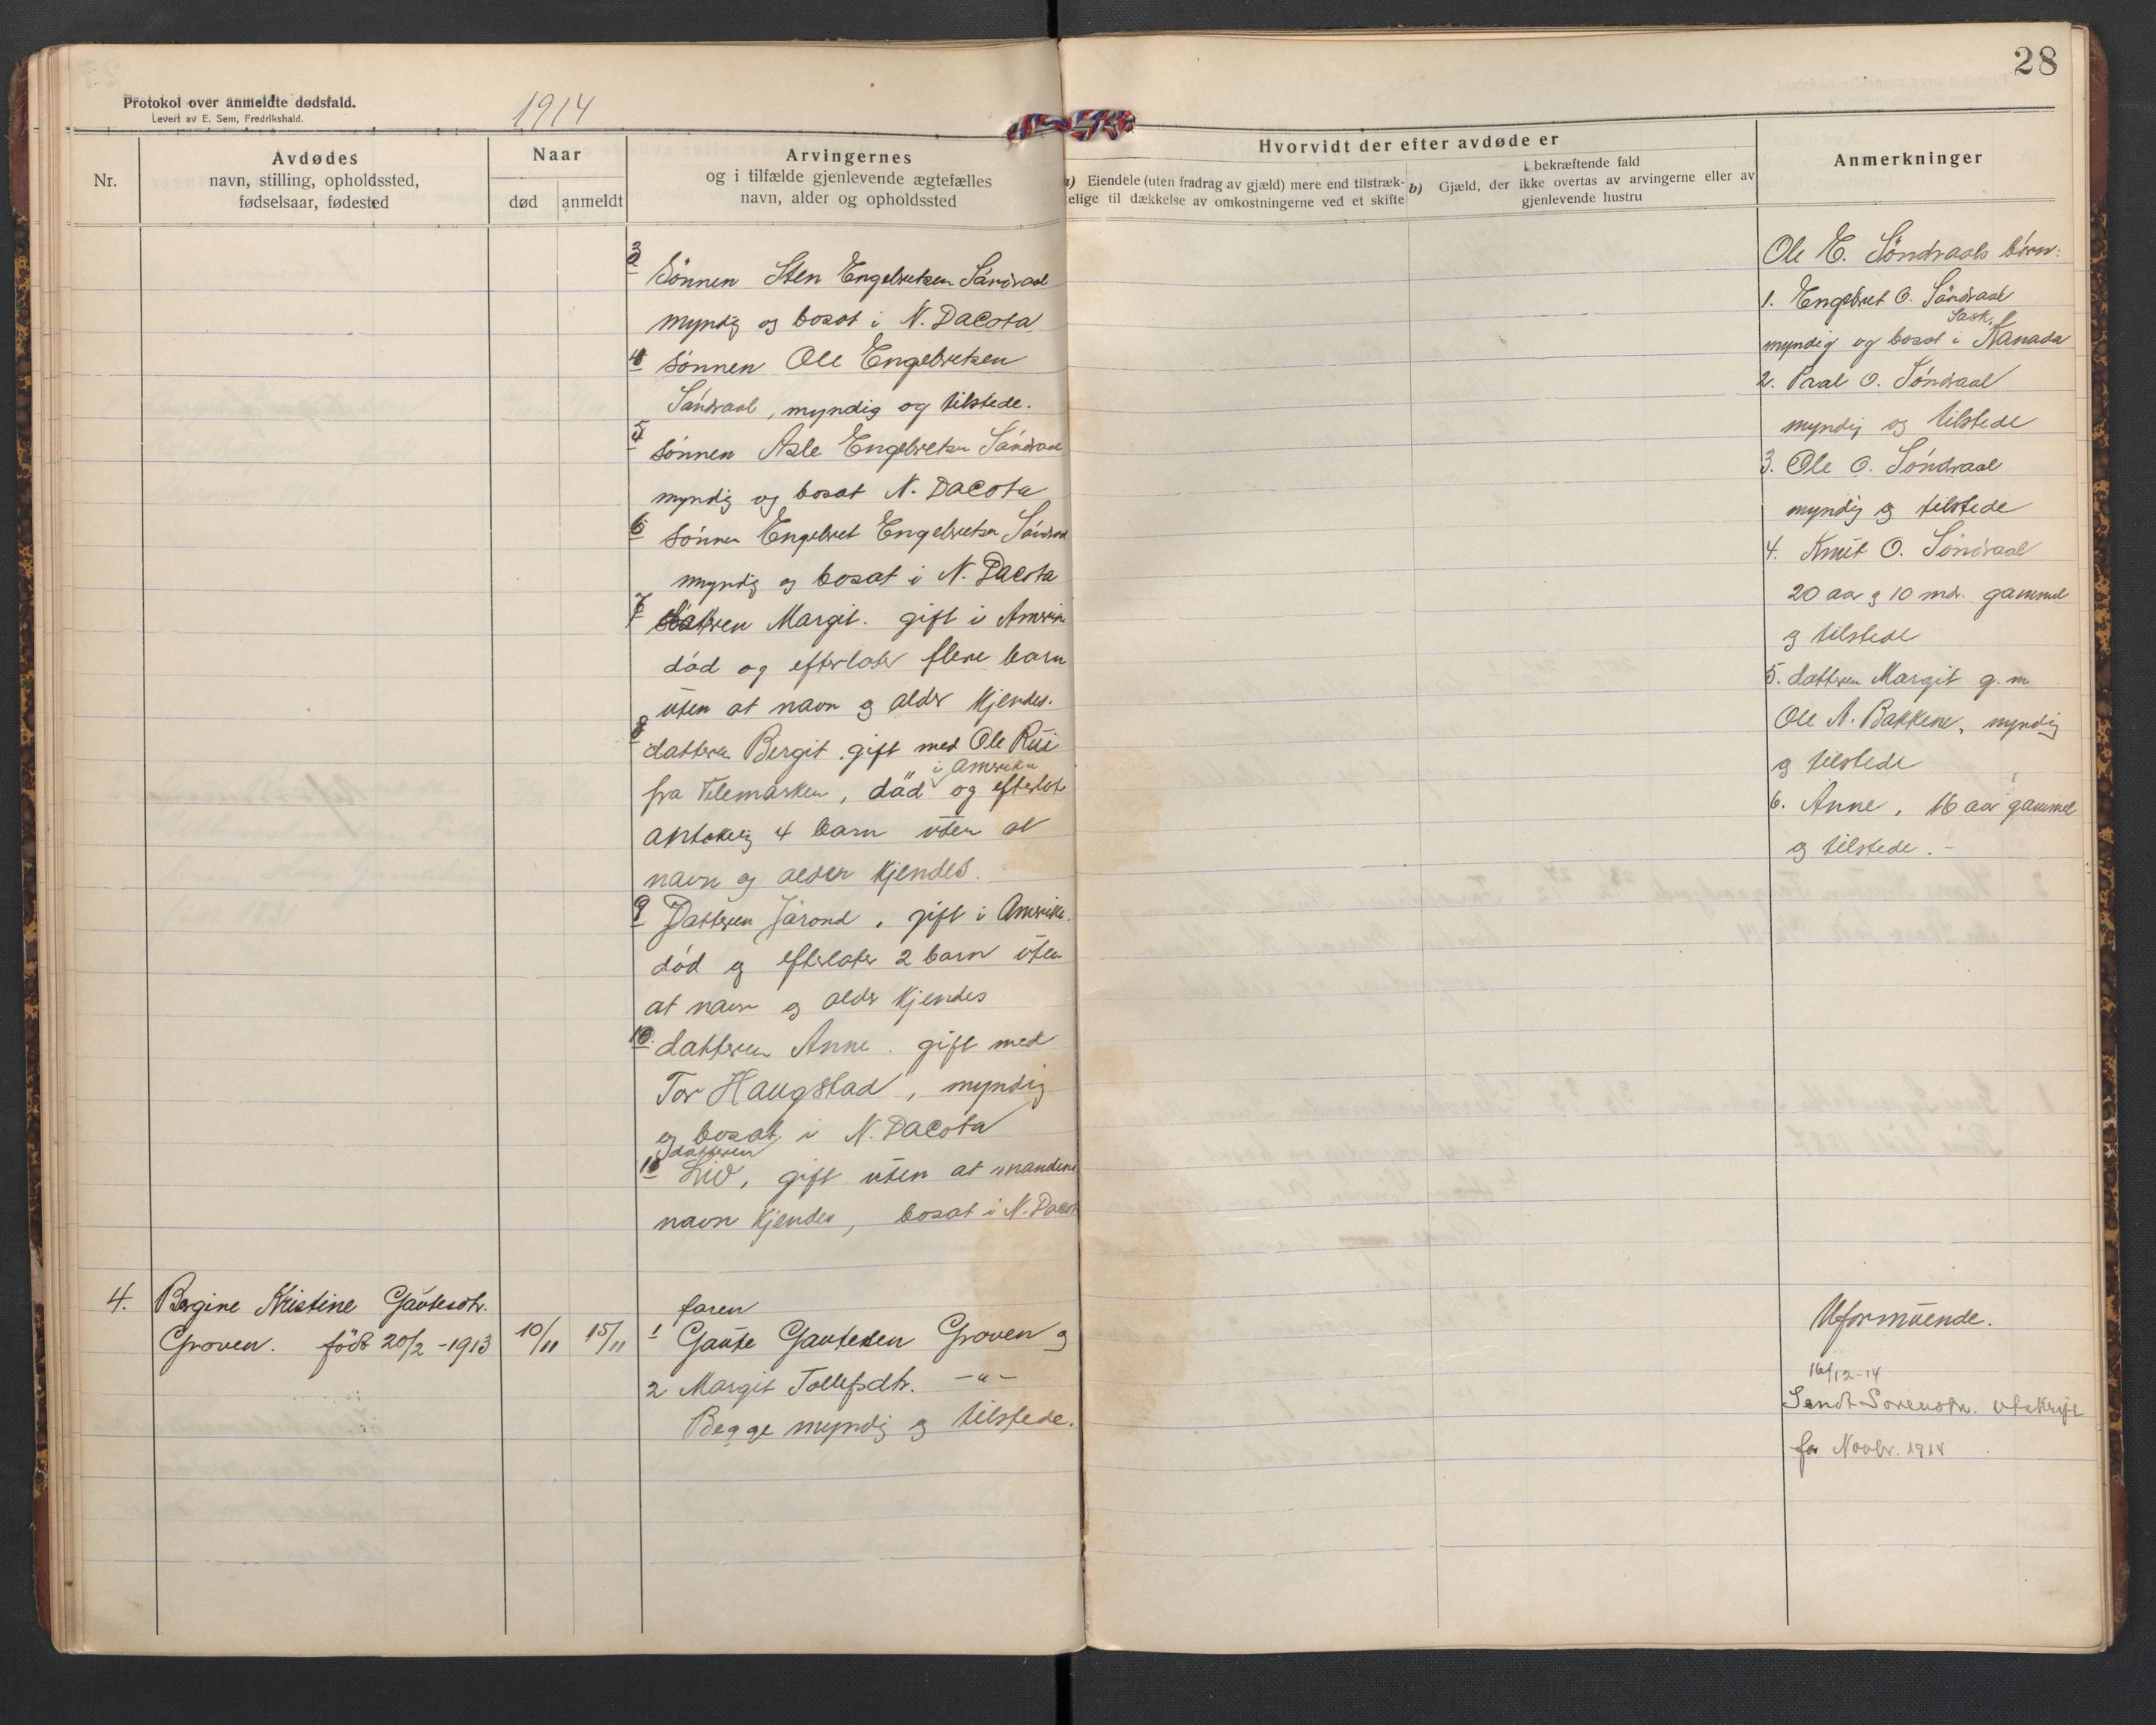 28
Protokol over anmeldte dødsfald.
Levert av E. Sem, Fredrikshald.
1914
Nr.
Avdødes
navn, stilling, opholdssted,
fødselsaar, fødested
Naar
død
anmeldt
Arvingernes
og i tilfælde gjenlevende ægtefælles
navn, alder og opholdssted
Hvorvidt der efter avdøde er
a) Eiendele (uten fradrag av gjæld) mere end tilstræk-
elige til dækkelse av omkostningerne ved et skifte
i bekræftende fald
b) Gjæld, der ikke overtas av arvingerne eller av
gjenlevende hustru
Anmerkninger
3
Sönnen Sten Engebretsen Söndraal
myndig og bosat i N. Dacota
4 sönnen Ole Engebretsen
Söndraal, myndig og tilstede.
5
sönnen Asle Engebretsen Söndraal
myndig og bosat N. Dacota
6 sönnen Engebret Engebretsen Söndraal
myndig og bosat i N. Dacota
7
datteren Margit. gift i Amerika
död og efterlater flere barn
uten at navn og alder kjendes.
8
datteren Bergit, gift med Ole Rui
fra Telemarken, död i Amerika og efterlater
antakelig 4 barn uten at
navn og alder kjendes.
9 Datteren Jörond, gift i Amerika.
död og efterlater 2 barn uten
at navn og alder kjendes
10. datteren Anne. gift med
Tor Haugstad, myndig
og bosat i N. Dacota
datteren
11 Liv, gift uten at mandens
navn kjendes, bosat i N. Dacot
4. Bergine Kristine Gautesdtr.
Groven. född 20/2 - 1913
10/11
15/11
faren
1 Gaute Gautesen Groven og
2 Margit Tollefsdtr. -"-
Begge myndig og tilstede.
Ole E. Söndraals börn:
1. Engebret O. Söndraal
Sask.
myndig og bosat i Kanada
2. Paal O. Söndraal
myndig og tilstede
3. Ole O. Söndraal
myndig og tilstede
4. Knut O. Söndraal
20 aar og 10 mdr. gammel
og tilstede
5. datteren Margit g. m
Ole N. Bakkene, myndig
og tilstede
6. Anne, 16 aar gammel
og tilstede.-
Uformuende.
16/12-14
Sendt Sorenskr. utskrift
for Novbr. 1914